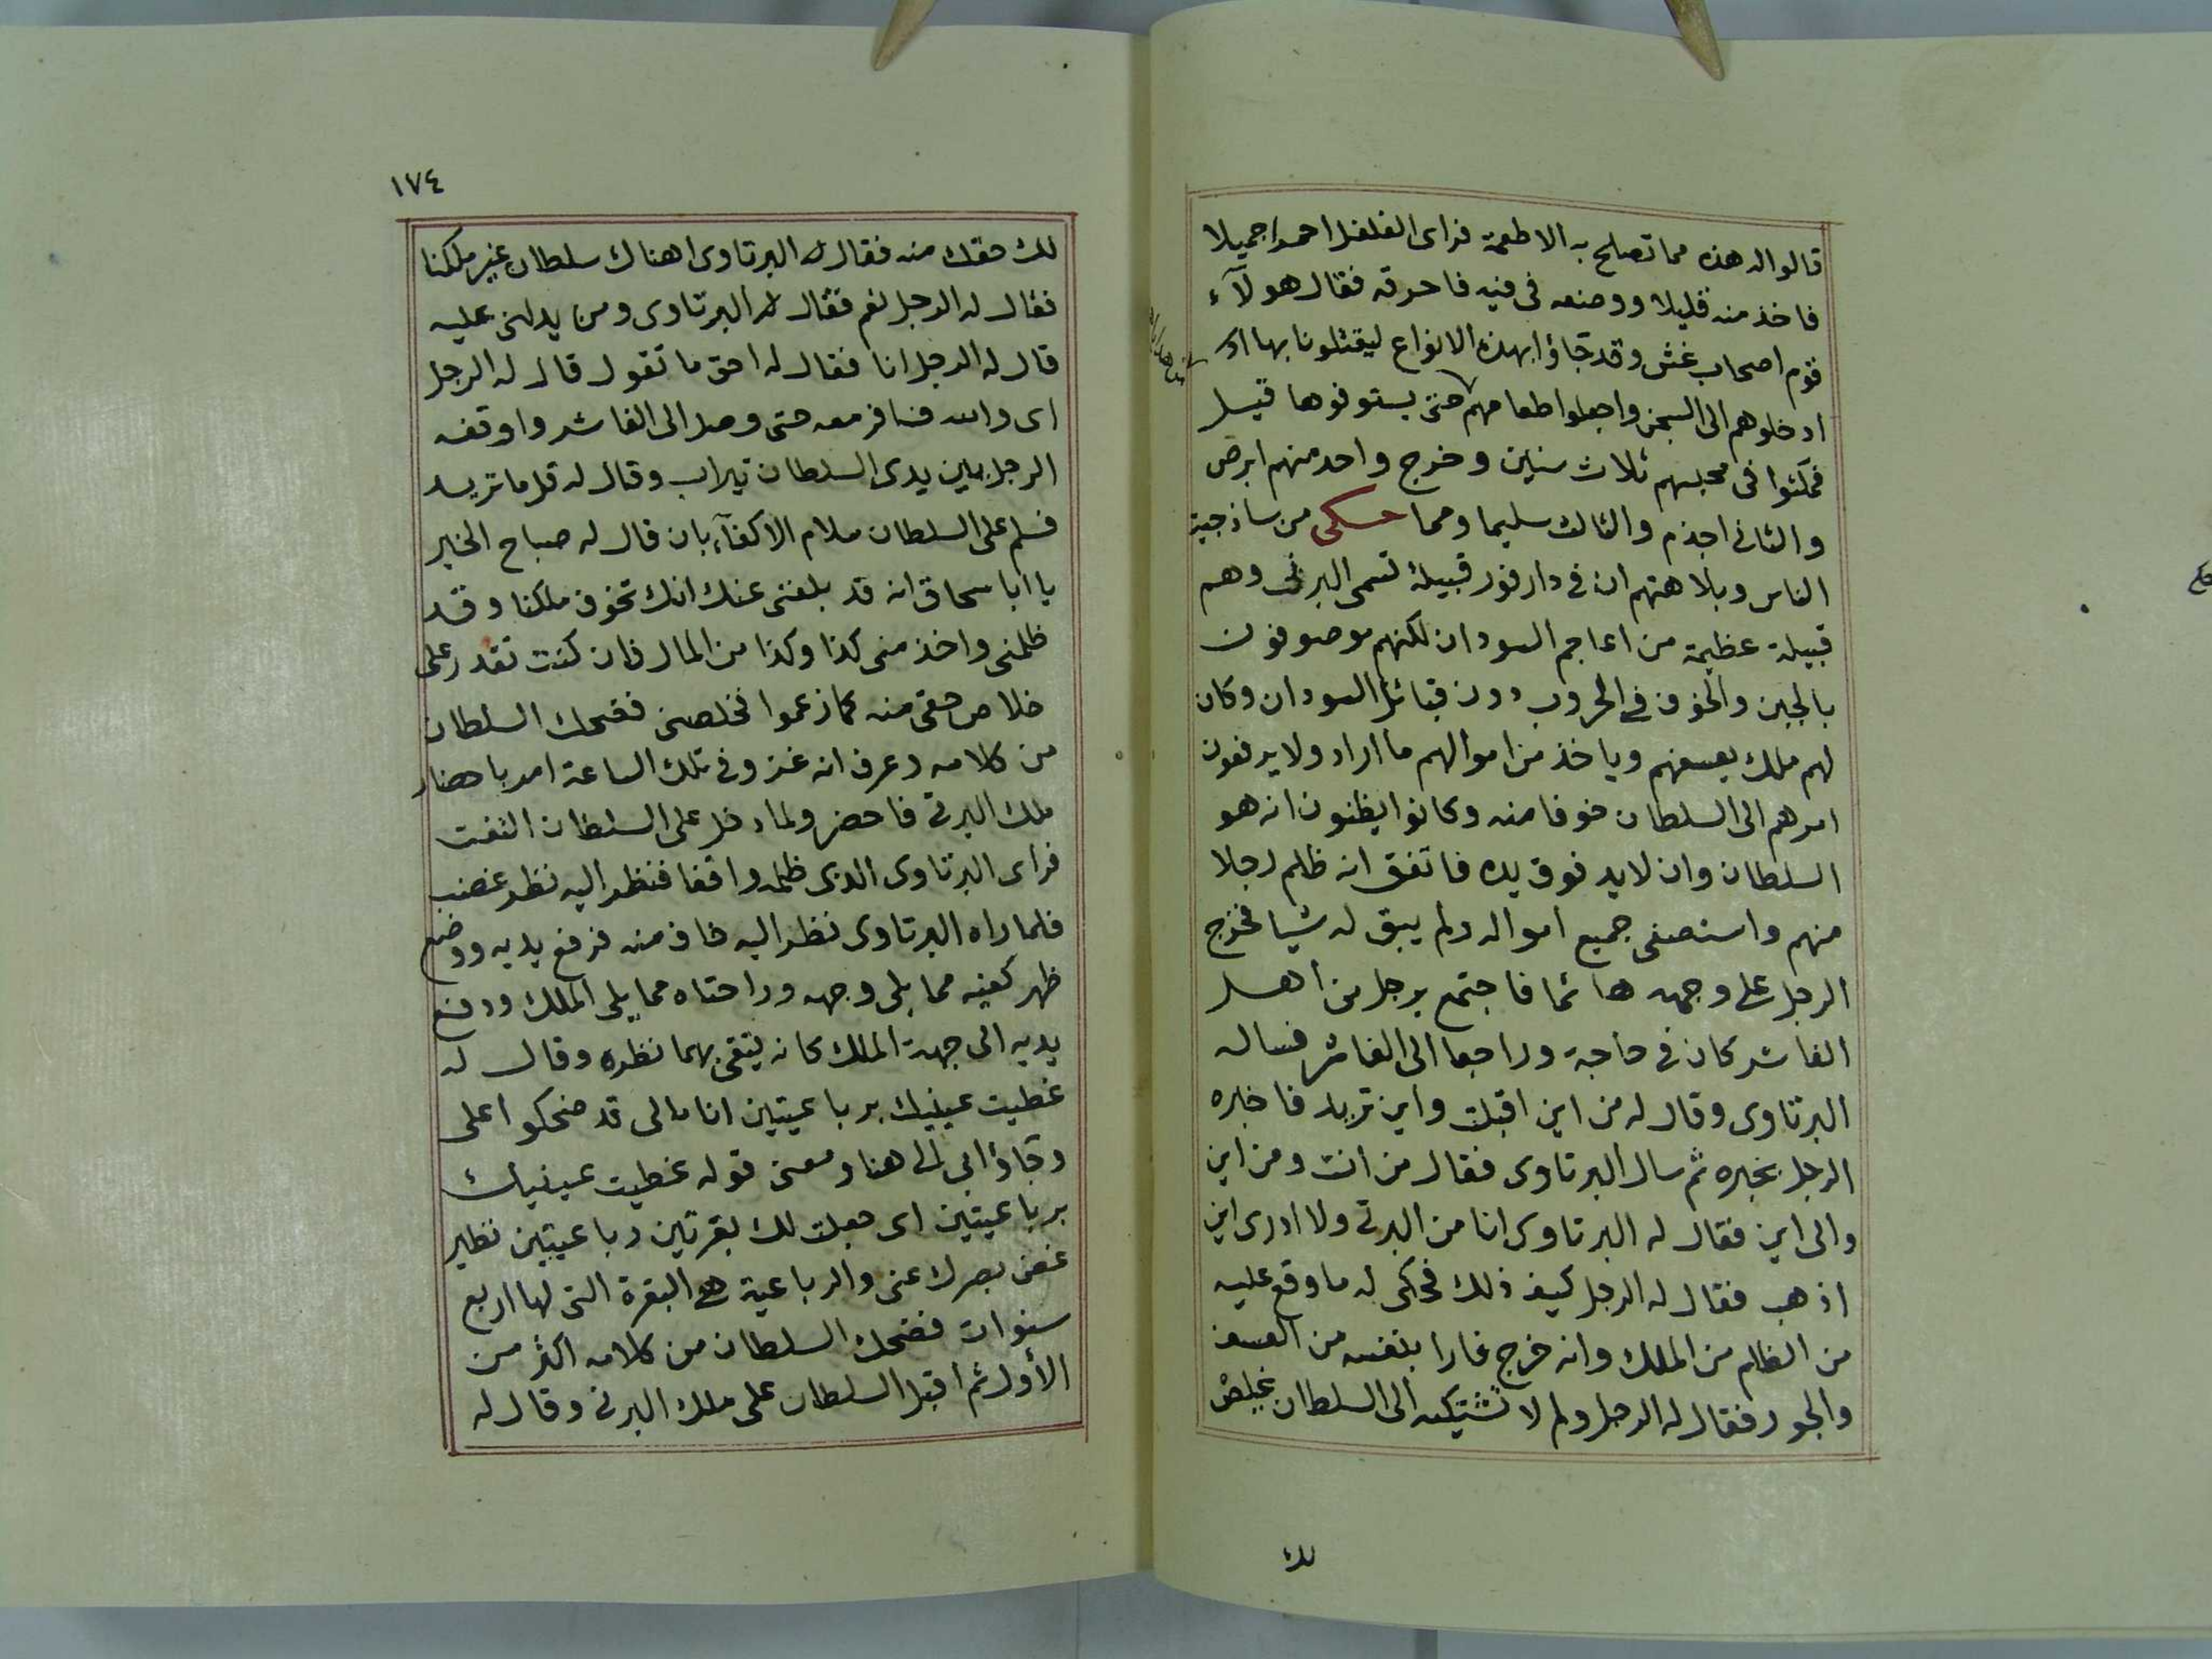 قالوا له هذه مما تصلح به الاطعمة فراى الفلفل احمرا جميلا
فاخذ منه قليلا ووضعه فى فيه فاحرقه فقال هولآء
قوم اصحاب غش وقد جاؤا بهذه الانواع ليقتلونا بها
ادخلوهم الى السجن واجعلوا طعامهم حتى يستوفوها قيل
فمكثوا فى محبسهم ثلاث سنين وخرج واحد منهم ابرص
والثانى اجذم والثالث سليما ومما حكى من ساذجية
الناس وبلاهتهم ان فى دارفور قبيلة تسمى البرتى وهم
قبيلة عظيمة من اعاجم السودان لكنهم موصوفون
بالجبن والخوف فى الحروب دون قبائل السودان وكان
لهم ملك يعسفهم وياخذ من اموالهم ما اراد ولا يرفعون
امرهم الى السلطان خوفا منه وكانوا يظنون انه هو
السلطان وان لا يد فوق يده فاتفق انه ظلم رجلا
منهم واستصفى جميع امواله ولم يبق له شيا فخرج
الرجل على وجهه هائما فاجتمع برجل من أهل
الفاشر كان فى حاجة وراجعا الى الفاشر فساله
البرتاوى وقال له من اين اقبلت واين تريد فاخبره
الرجل بخبره ثم سال البرتاوى فقال من انت ومن اين
والى اين فقال له البرتاوى انا من البرتى ولا ادرى اين
اذهب فقال له الرجل كيف ذلك فحكى له ما وقع عليه
من الظلم من الملك وانه خرج فارا بنفسه من العسف
والجور فقال له الرجل ولم لا تشتكيه الى السلطان يخلص
لك
١٧٤
لك حقك منه فقال له البرتاوى اهناك سلطان غير ملكنا
فقال له الرجل نعم فقال له البرتاوى ومن يدلنى عليه
قال له الرجل انا فقال له احق ما تقول قال له الرجل
اى والله فسافر معه حتى وصل الى الفاشر واوقفه
الرجل بين يدى السلطان تيراب وقال له قل ما تريد
فسلم على السلطان سلام الاكفآء بان قال له صباح الخير
يا ابا سحاق انه قد بلغنى عنك انك تخوف ملكنا وقد
ظلمنى واخذ منى كذا وكذا من المال فان كنت تقدر على
خلاص حقى منه كما زعموا فخلصنى فضحك السلطان
من كلامه وعرف انه غز وفى تلك الساعة امر باحضار
ملك البرتى فاحضر ولما دخل على السلطان التفت
فراى البرتاوى الذى ظلمه واقفا فنظر اليه نظر غضب
فلما راه البرتاوى نظر اليه خاف منه فرفع يديه ووضع
ظهر كفيه مما يلى وجهه وراحتاه مما يلى الملك ودفع
يديه الى جهة الملك كانه يتقى بهما نظره وقال له
غطيت عينيك برباعيتين انا مالى قد ضحكوا على
وجاؤا بى الى هنا ومعنى قوله غطيت عينيك
برباعيتين اى جعلت لك بقرتين رباعيتين نظير
غض بصرك عنى والرباعية هى البقرة التى لها اربع
سنوات فضحك السلطان من كلامه اكثر من
الأول ثم اقبل السلطان على ملك البرتى وقال له